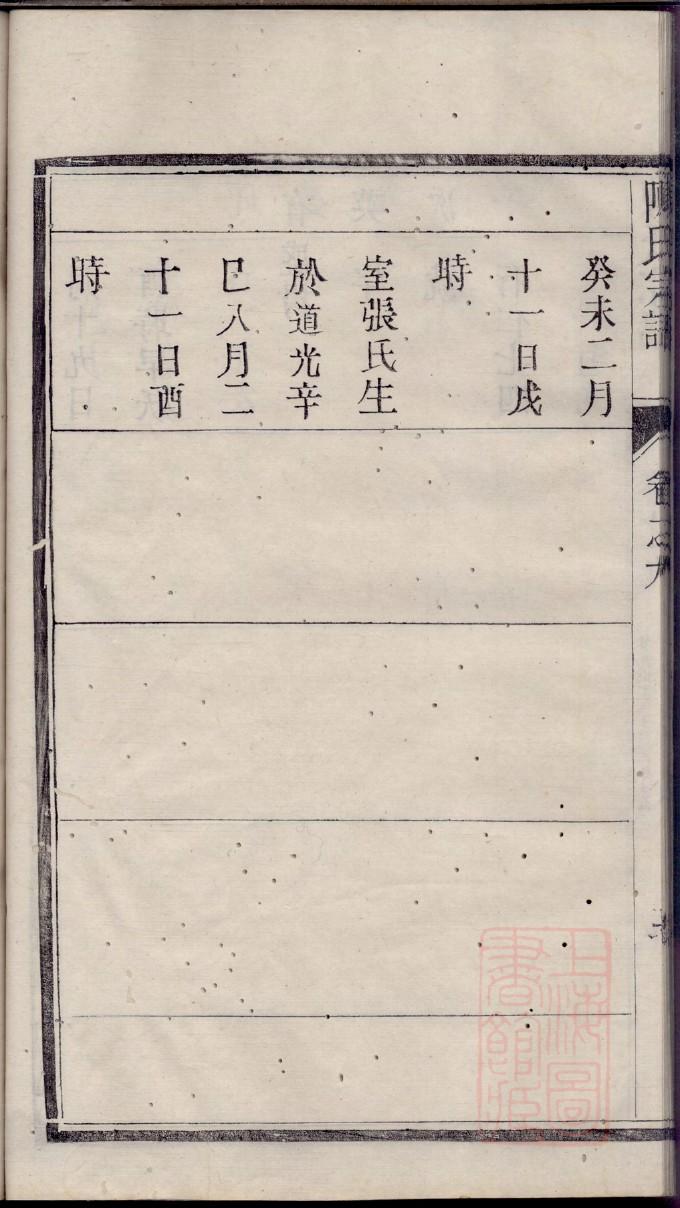 陳氏宗譜
卷之九
癸未二月
十一日戌
時
室張氏生
於道光辛
巳八月二
十一日酉
時
上海圖
書館藏